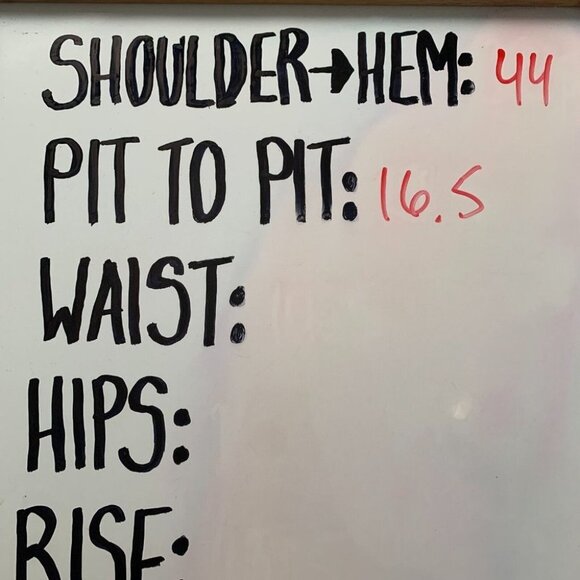 SHOULDER→HEM: 44
PIT TO PIT: 16.5
WAIST:
HIPS:
RISE: